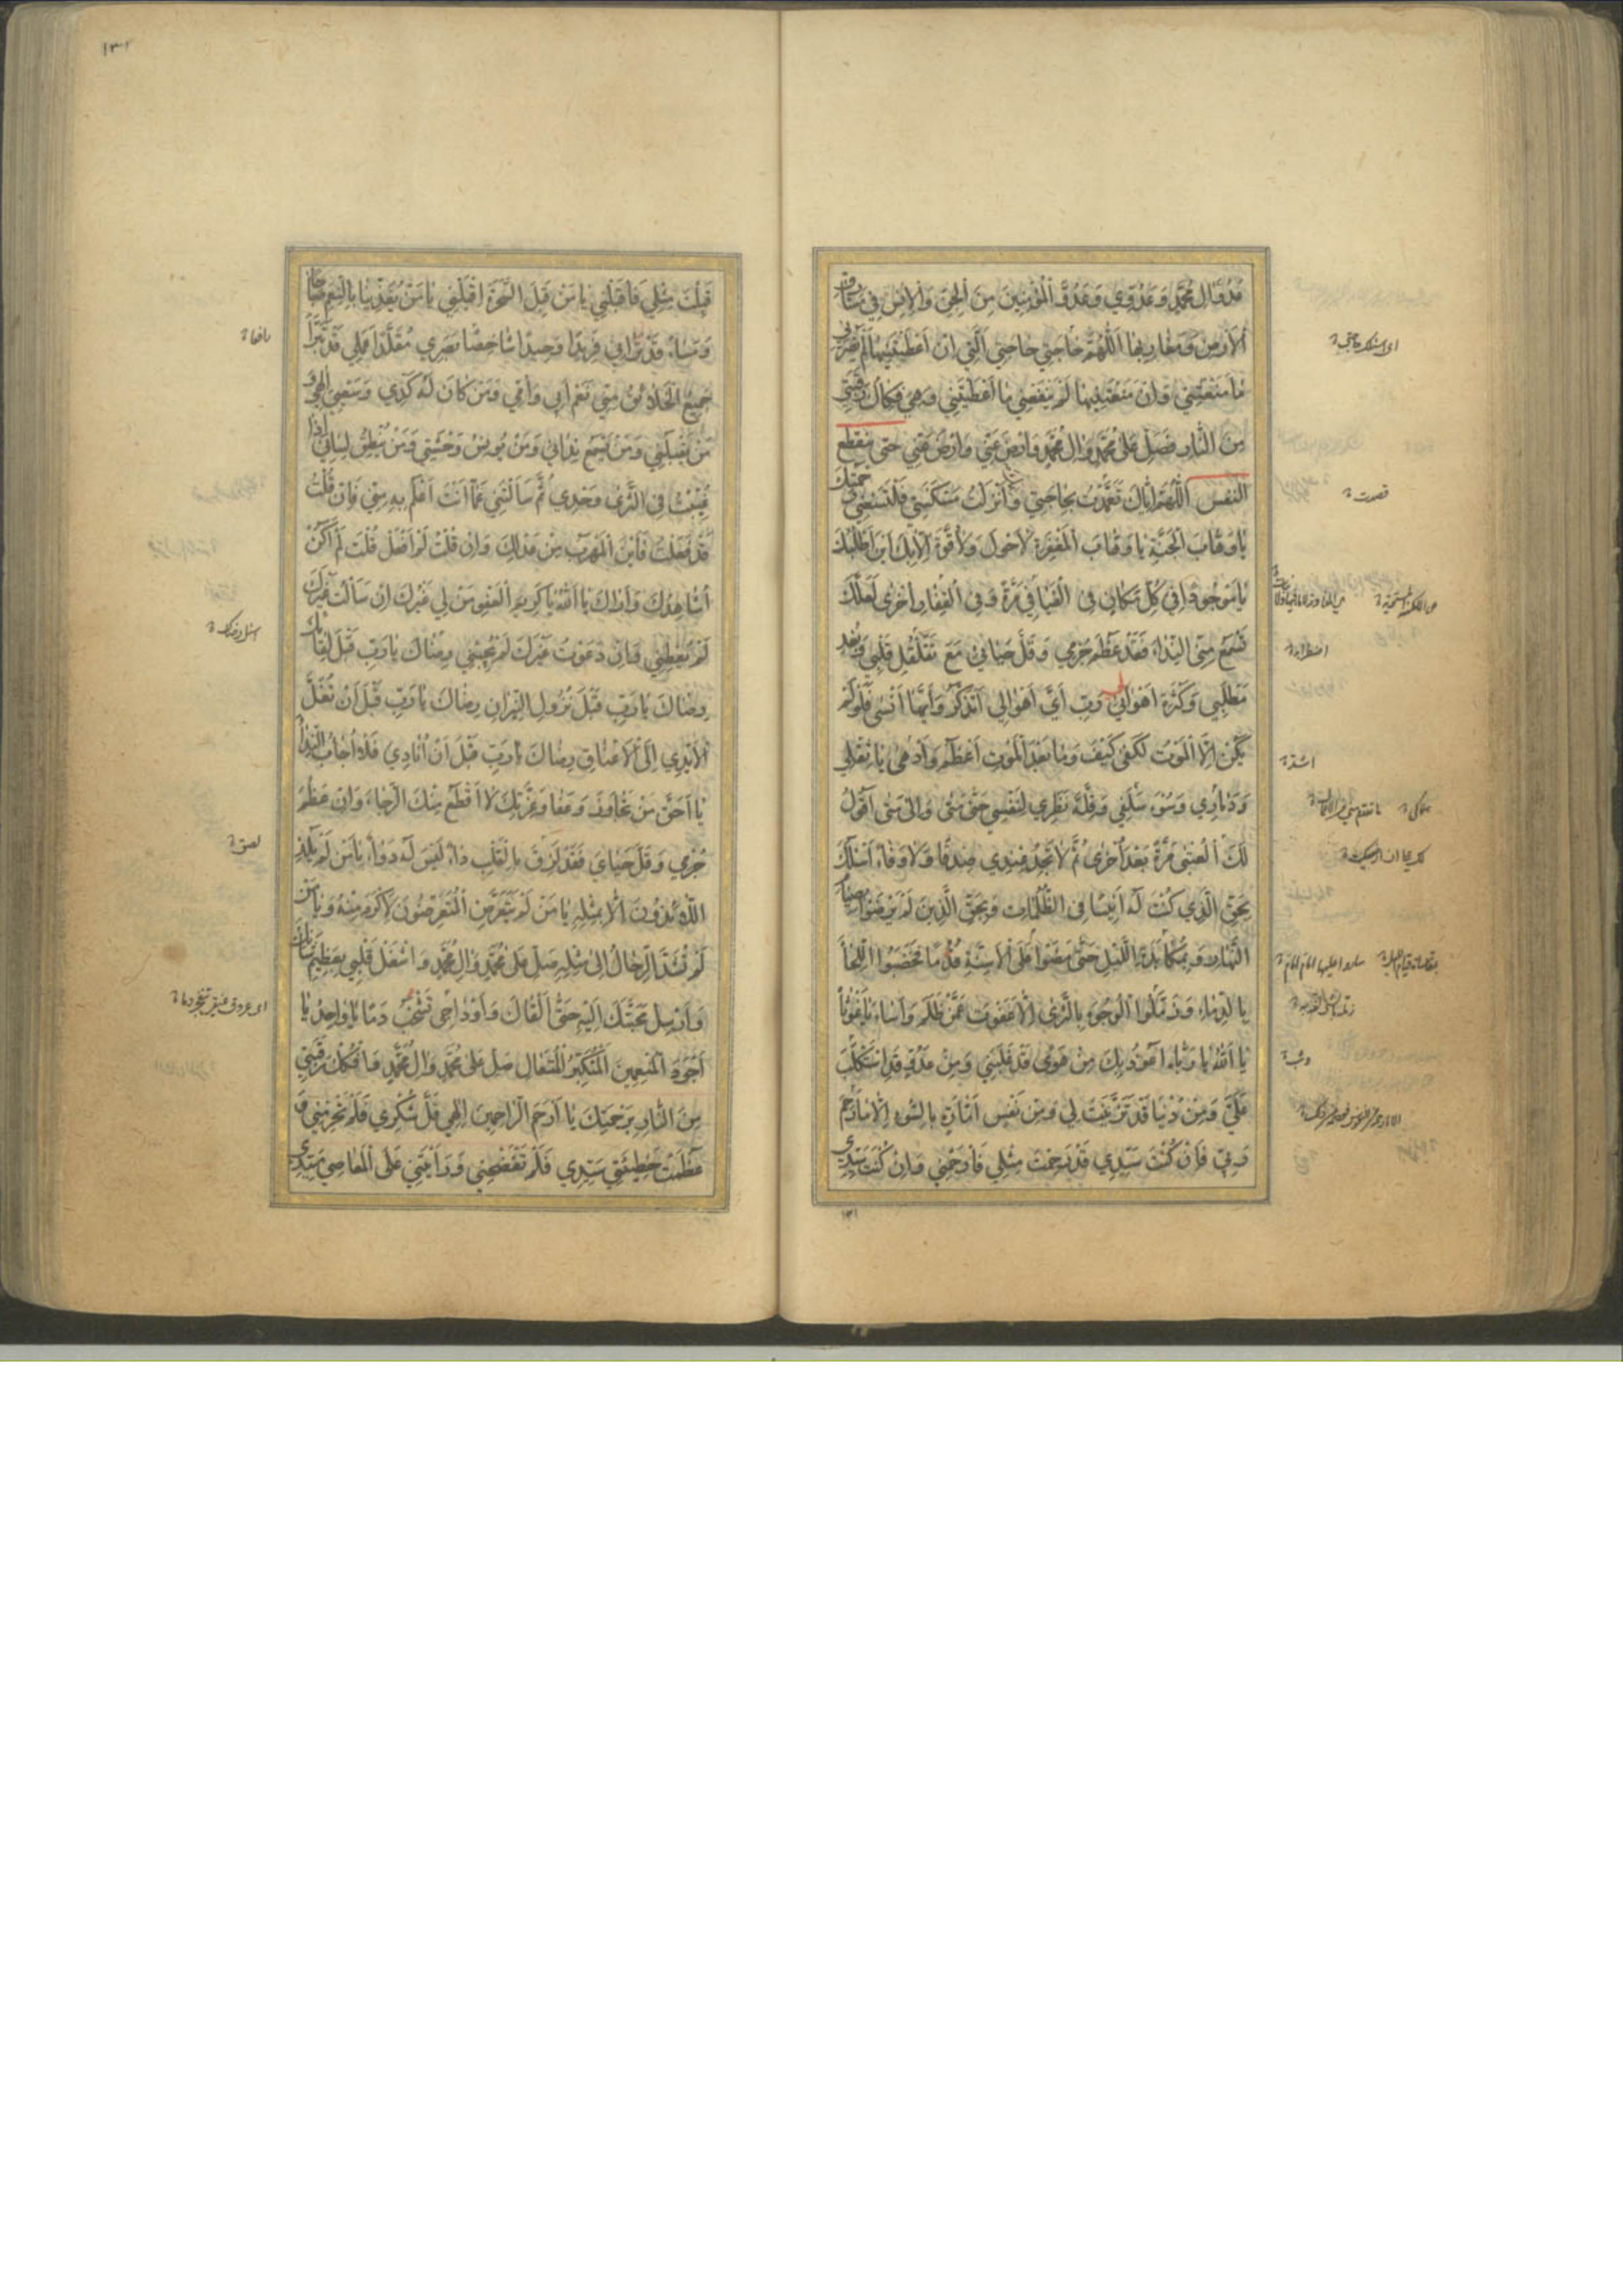 عَدُوَّ آلِ مُحَمَّدٍ وَعَدُوِّي وَعَدُوَّ الْمُؤْمِنِينَ مِنَ الْجِنِّ وَالْإِنْسِ فِي مَشَارِقِ
الْأَرْضِ وَمَغَارِبِهَا اَللّٰهُمَّ حَاجَتِي حَاجَتِي الَّتِي اِنْ اَعْطَيْتَنِيهَا لَمْ يَضُرَّنِي
مَا مَنَعْتَنِي وَاِنْ مَنَعْتَنِيهَا لَمْ يَنْفَعْنِي مَا اَعْطَيْتَنِي وَهِيَ فَكَاكُ رَقَبَتِي
مِنَ النَّارِ فَصَلِّ عَلَى مُحَمَّدٍ وَالِ مُحَمَّدٍ وَارْضَ عَنِّي وَارْضَ عَنِّي حَتَّى يَنْقَطِعَ
النَّفَسُ اَللّٰهُمَّ اِيَّاكَ تَعَمَّدْتُ بِحَاجَتِي وَاَنْزَلْتُ مَسْكَنَتِي فَلْتَسَعْنِي رَحْمَتُكَ
يَا وَهَّابَ الْجَنَّةِ يَا وَهَّابَ الْمَغْفِرَةِ لَا حَوْلَ وَلَا قُوَّةَ اِلَّا بِكَ اَيْنَ اَطْلُبُكَ
يَا مَوْجُودًا فِي كُلِّ مَكَانٍ فِي الْفَيَافِي مَرَّةً وَفِي الْقِفَارِ اُخْرَى لَعَلَّكَ
تَسْمَعُ مِنِّي النِّدَاءَ فَقَدْ عَظُمَ جُرْمِي وَقَلَّ حَيَائِي مَعَ تَقَلْقُلِ قَلْبِي وَبُعْدِ
مَطْلَبِي وَكَثْرَةِ اَهْوَالِي رَبِّ اَيَّ اَهْوَالِي اَتَذَكَّرُ وَاَيَّهَا اَنْسٰى فَلَوْ لَمْ
يَكُنْ اِلَّا الْمَوْتُ لَكَفٰى كَيْفَ وَمَا بَعْدَ الْمَوْتِ اَعْظَمُ وَاَدْهٰى يَا ثِقْلِي
وَدَمَارِي وَسُوءَ سَلَفِي وَقِلَّةَ نَظَرِي لِنَفْسِي حَتَّى مَتٰى وَاِلٰى مَتٰى اَقُولُ
لَكَ الْعُتْبٰى مَرَّةً بَعْدَ اُخْرٰى ثُمَّ لَا تَجِدُ عِنْدِي صِدْقًا وَلَا وَفَاءً اَسْئَلُكَ
بِحَقِّ الَّذِي كُنْتَ لَهُ اَنِيسًا فِي الظُّلُمَاتِ وَبِحَقِّ الَّذِينَ لَمْ يَرْضَوْا بِصِيَامِ
النَّهَارِ وَبِمُكَابَدَةِ اللَّيْلِ حَتَّى مَضَوْا عَلَى الْاَسِنَّةِ قُدُمًا فَخَضَبُوا اللِّحَا
بِالدِّمَاءِ وَرَمَّلُوا الْوُجُوهَ بِالثَّرٰى اِلَّا عَفَوْتَ عَمَّنْ ظَلَمَ وَاَسَاءَ يَا غَوْثَاهُ
يَا اَللهُ يَا رَبَّاهُ اَعُوذُ بِكَ مِنْ هَوًى قَدْ غَلَبَنِي وَمِنْ عَدُوٍّ قَدِ اسْتَكْلَبَ
عَلَيَّ وَمِنْ دُنْيَا قَدْ تَزَيَّنَتْ لِي وَمِنْ نَفْسٍ اَمَّارَةٍ بِالسُّوءِ اِلَّا مَا رَحِمَ
رَبِّي فَاِنْ كُنْتَ سَيِّدِي قَدْ رَحِمْتَ مِثْلِي فَارْحَمْنِي وَاِنْ كُنْتَ سَيِّدِي
قصدت
اضطرابه
اشد
١٣١
١٣٢
قَبِلْتَ مِثْلِي فَاقْبَلْنِي يَا مَنْ قَبِلَ السَّحَرَةَ اقْبَلْنِي يَا مَنْ يُغَذِّينَا بِالنِّعَمِ صَبَاحًا
وَمَسَاءً قَدْ تَرَانِي فَرِيدًا وَحِيدًا شَاخِصًا بَصَرِي مُقَلَّدًا عَمَلِي قَدْ تَبَرَّأَ
جَمِيعُ الْخَلَائِقِ مِنِّي نَعَمْ اَبِي وَاُمِّي وَمَنْ كَانَ لَهُ كَدِّي وَسَعْيِي اِلٰهِي وَ
مَنْ يَقْبَلُنِي وَمَنْ يَسْمَعُ نِدَائِي وَمَنْ يُونِسُ وَحْشَتِي وَمَنْ يُنْطِقُ لِسَانِي اِذَا
غُيِّبْتُ فِي الثَّرٰى وَحْدِي ثُمَّ سَاَلْتَنِي عَمَّا اَنْتَ اَعْلَمُ بِهِ مِنِّي فَاِنْ قُلْتُ
قَدْ فَعَلْتُ فَاَيْنَ الْمَهْرَبُ مِنْ عَدْلِكَ وَاِنْ قُلْتُ لَمْ اَفْعَلْ قُلْتَ اَلَمْ اَكُنْ
اُشَاهِدُكَ وَاَرَاكَ يَا اَللهُ يَا كَرِيمَ الْعَفْوِ مَنْ لِي غَيْرُكَ اِنْ سَاَلْتُ غَيْرَكَ
لَمْ يُعْطِنِي وَاِنْ دَعَوْتُ غَيْرَكَ لَمْ يُجِبْنِي رِضَاكَ يَا رَبِّ قَبْلَ لِقَائِكَ
رِضَاكَ يَا رَبِّ قَبْلَ نُزُولِ النِّيرَانِ رِضَاكَ يَا رَبِّ قَبْلَ اَنْ تُغَلَّ
الْاَيْدِي اِلَى الْاَعْنَاقِ رِضَاكَ يَا رَبِّ قَبْلَ اَنْ اُنَادِي فَلَا اُجَابُ النِّدَاءَ
يَا اَحَقَّ مَنْ تَجَاوَزَ وَعَفَا وَعِزَّتِكَ لَا اَقْطَعُ مِنْكَ الرَّجَاءَ وَاِنْ عَظُمَ
جُرْمِي وَقَلَّ حَيَايَ فَقَدْ لَزِقَ بِالْقَلْبِ دَاءٌ لَيْسَ لَهُ دَوَاءٌ يَا مَنْ لَمْ يَلُذِ
اللَّائِذُونَ اِلَّا بِمِثْلِهِ يَا مَنْ لَمْ يَتَعَرَّضِ الْمُتَعَرِّضُونَ لِاَكْرَمَ مِنْهُ وَيَا مَنْ
لَمْ تُشَدَّ الرِّحَالُ اِلٰى مِثْلِهِ صَلِّ عَلٰى مُحَمَّدٍ وَالِ مُحَمَّدٍ وَاشْغَلْ قَلْبِي بِعَظِيمِ شَاْنِكَ
وَاَرْسِلْ مَحَبَّتَكَ اِلَيْهِ حَتَّى اَلْقَاكَ وَاَوْدَاجِي تَشْخَبُ دَمًا يَا وَاحِدُ يَا
اَجْوَدَ الْمُنْعِمِينَ الْمُتَكَبِّرُ الْمُتَعَالِ صَلِّ عَلٰى مُحَمَّدٍ وَالِ مُحَمَّدٍ وَافْكُكْ رَقَبَتِي
مِنَ النَّارِ بِرَحْمَتِكَ يَا اَرْحَمَ الرَّاحِمِينَ اِلٰهِي قَلَّ شُكْرِي فَلَمْ تَحْرِمْنِي وَ
عَظُمَتْ خَطِيئَتِي سَيِّدِي فَلَمْ تَفْضَحْنِي وَرَاَيْتَنِي عَلَى الْمَعَاصِي سَيِّدِي
رافعا
اسئل رضاك
لصق